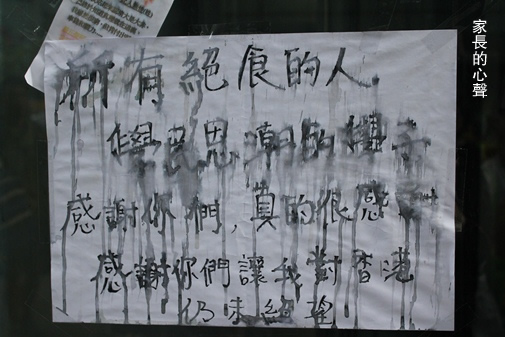 家長的心聲
所有絕食的人
學民思潮的
感謝你們，真的很感謝
感謝你們讓我對香港
仍未絕望